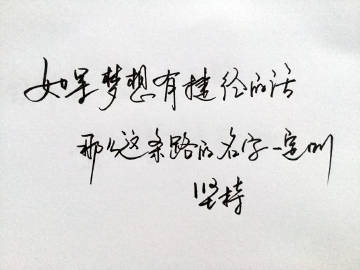 如果梦想有捷径的话
那么这条路的名字一定叫
坚持